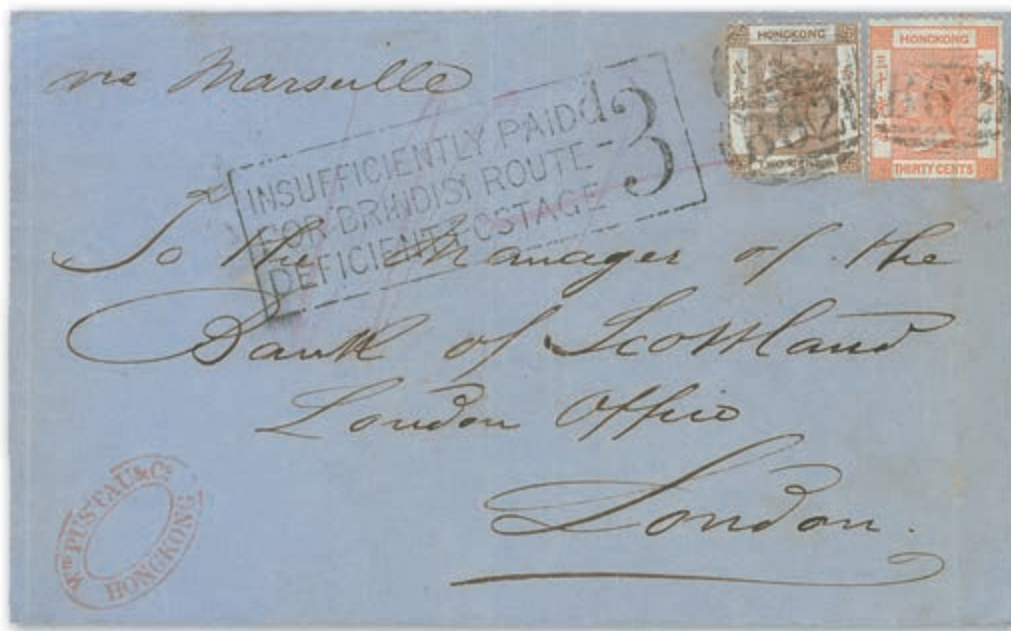 via Marseille
HONGKONG
TWO CENTS
HONGKONG
三十
THIRTY CENTS
B62
B62
INSUFFICIENTLY PAID
FOR BRINDISI ROUTE-
DEFICIENT POSTAGE
d
3
To the Manager of the
Bank of Scottland
London Office
London.
Wm PUSTAU & Co
HONGKONG